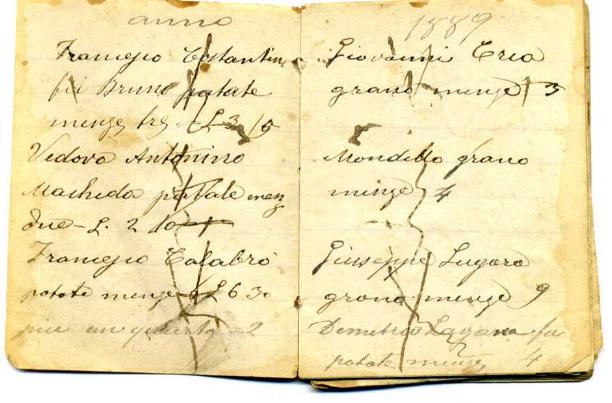 anno
Francesco Costantin
fu Bruno patate
menze tre - L 3 15
Vedova Antonino
Macheda patate menz
due - L. 2 10
Francesco Calabrò
patate menze 6 L 6 30
piu un quarto - 2
1889
Giovanni Crea
grano menze 5
Mondello grano
menze 4
Giuseppe Lugara
grano menze 9
Demetrio Lazzana fu
patate menze 4